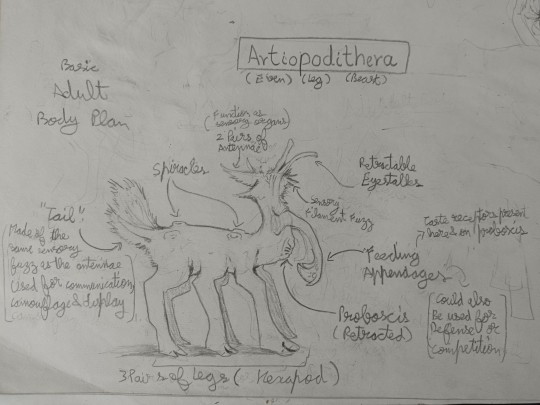 Artiopodithera
(Even) (Leg) (Beast)
Basic
Adult
Body Plan
(Function as
sensory organs)
2 Pairs of
Antennae
Spiracles
Retractable
Eyestalks
Sensory
Filament Fuzz
Taste receptors present
here & on proboscis
"Tail":
Made of the
same sensory
fuzz as the antennae
Used for communication,
camouflage & display
Feeding
Appendages
Could also
Be used for
Defense or
Competition
Proboscis
(Retracted)
3 Pairs of Legs (Hexapod)